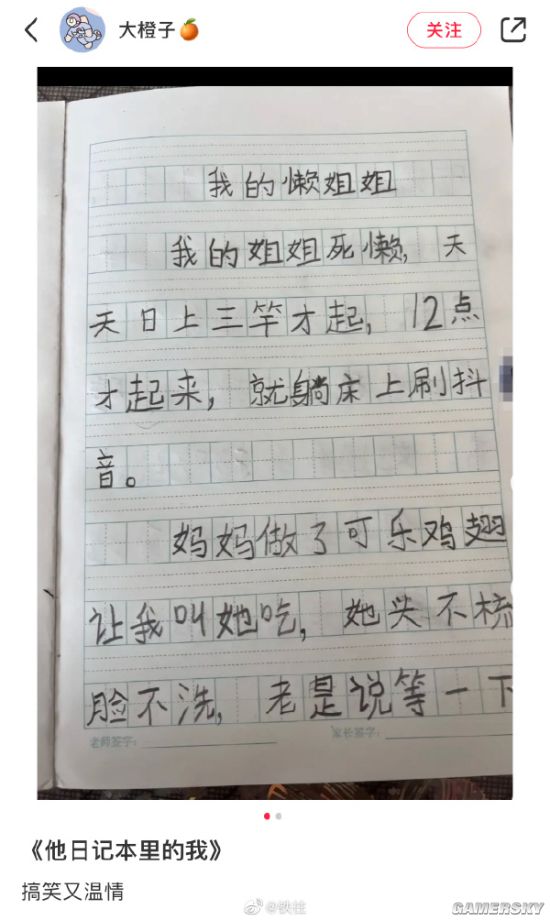 大橙子🍊
关注
我的懒姐姐
我的姐姐死懒,天
天日上三竿才起,12点
才起来,就躺床上刷抖
音。
妈妈做了可乐鸡翅
让我叫她吃,她头不梳
脸不洗,老是说等一下
老师签字:
家长签字:
《他日记本里的我》
搞笑又温情
@铁柱
GAMERSKY